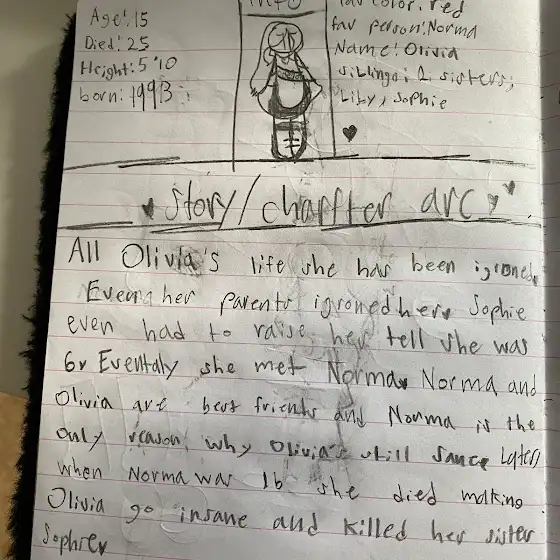 Age: 15
Died: 25
Height: 5"10
born: 1993
info
fav color: red
fav person: Norma
Name: Olivia
siblings: 2 sisters;
Liby, Sophie
story/chaffter arc
All Olivia's life she has been igroned.
Even her parents igroned her. Sophie
even had to raise her tell she was
6. Eventaly she met Norma. Norma and
Olivia are best frients and Norma is the
only reason why Olivia's still sance Later
when Norma was 16 she died making
Olivia go insane and killed her sister
Sophie.